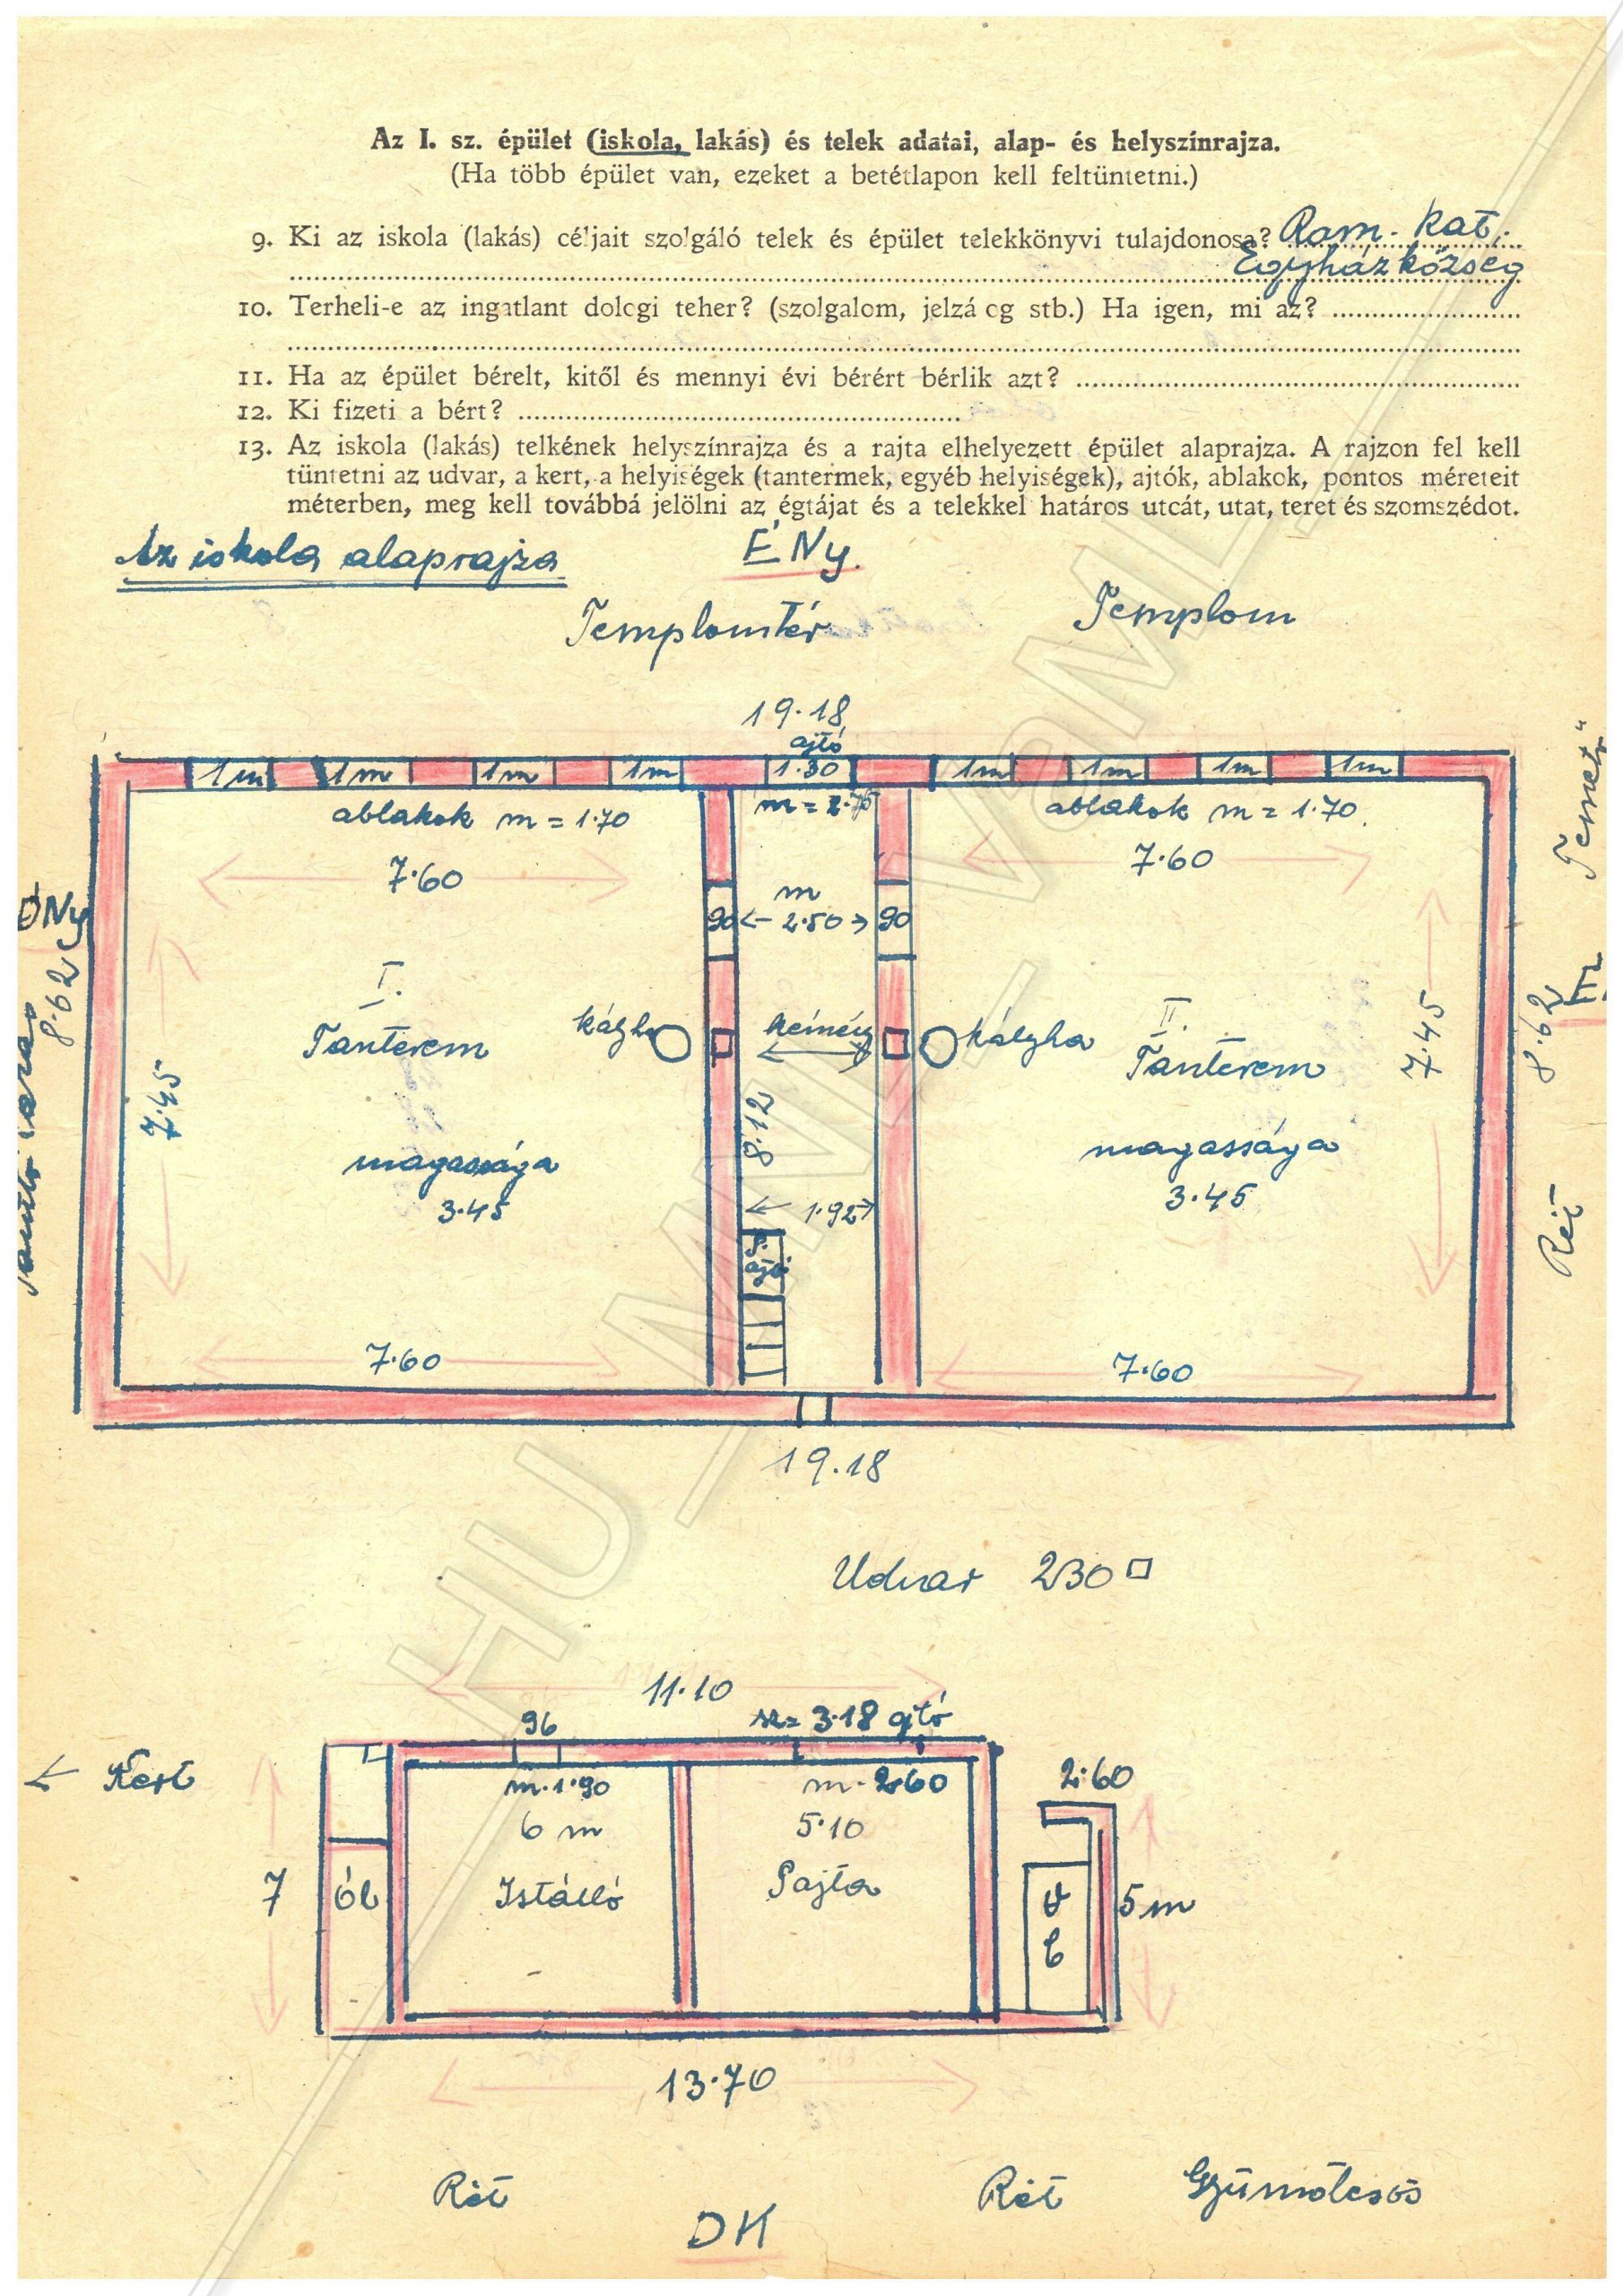 Az I. sz. épület (iskola, lakás) és telek adatai, alap- és helyszínrajza.
(Ha több épület van, ezeket a betétlapon kell feltüntetni.)
9. Ki az iskola (lakás) céljait szolgáló telek és épület telekkönyvi tulajdonosa? Rom. kat.
Egyházközség
10. Terheli-e az ingatlant dologi teher? (szolgalom, jelzá og stb.) Ha igen, mi az?
11. Ha az épület bérelt, kitől és mennyi évi bérért bérlik azt?
12. Ki fizeti a bért?
13. Az iskola (lakás) telkének helyszínrajza és a rajta elhelyezett épület alaprajza. A rajzon fel kell
tüntetni az udvar, a kert, a helyiségek (tantermek, egyéb helyiségek), ajtók, ablakok, pontos méreteit
méterben, meg kell továbbá jelölni az égtájat és a telekkel határos utcát, utat, teret és szomszédot.
Az iskola alaprajza
ÉNy.
Templomtér
Templom
19.18
ajtó
1m 1m 1m 1m 1.30 1m 1m 1m 1m
ablakok m = 1.70
m = 2.75
ablakok m = 1.70
7.60
7.60
m
90 ← 2.50 → 90
DNy
8.62
I.
Tanterem
kályha
kémény
kályha
II.
Tanterem
7.45
7.45
8.62
É
Temető
Rét
8.12
magassága
3.45
magassága
3.45
← 1.92 →
ajtó
7.60
7.60
19.18
Udvar 230 □
11.10
96
sz= 3.18 ajtó
← Kert
m. 1.90
m. 2.60
2.60
6 m
5.10
7
ól
Istálló
Pajta
ól
5 m
13.70
Rét
Rét
Gyümölcsös
DK
HU_MNL_VaML